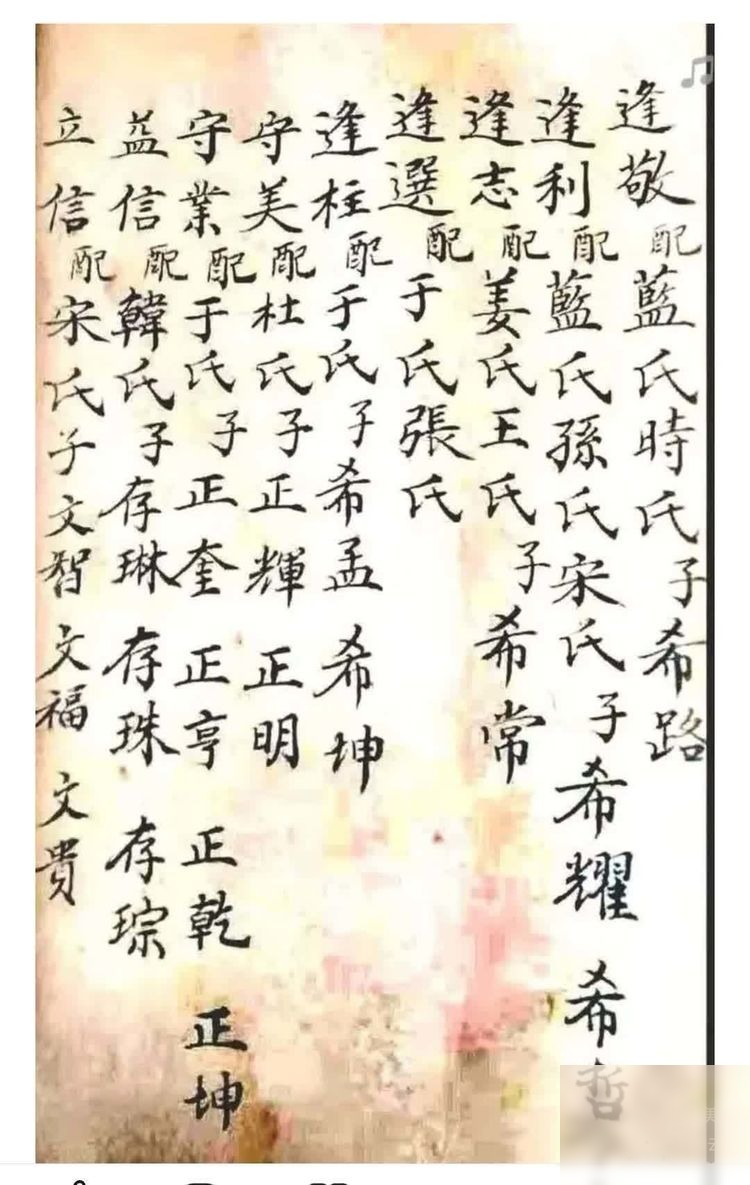 逢敬配藍氏時氏子希路
逢利配藍氏孫氏宋氏子希耀 希哲
逢志配姜氏王氏子希常
逢選配于氏張氏
逢柱配于氏子希孟 希坤
守美配杜氏子正輝 正明
守業配于氏子正奎 正亨 正乾 正坤
益信配韓氏子存琳 存珠 存琮
立信配宋氏子文智 文福 文貴